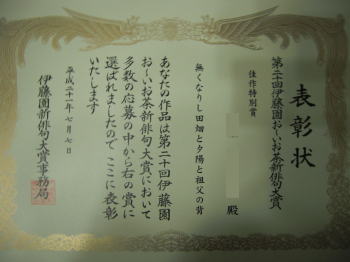 表彰状
第二十回伊藤園お〜いお茶新俳句大賞
佳作特別賞
無くなりし田畑と夕陽と祖父の背
殿
あなたの作品は第二十回伊藤園
お〜いお茶新俳句大賞において
多数の応募の中から右の賞に
選ばれましたので ここに表彰
いたします
平成二十一年七月七日
伊藤園新俳句大賞事務局